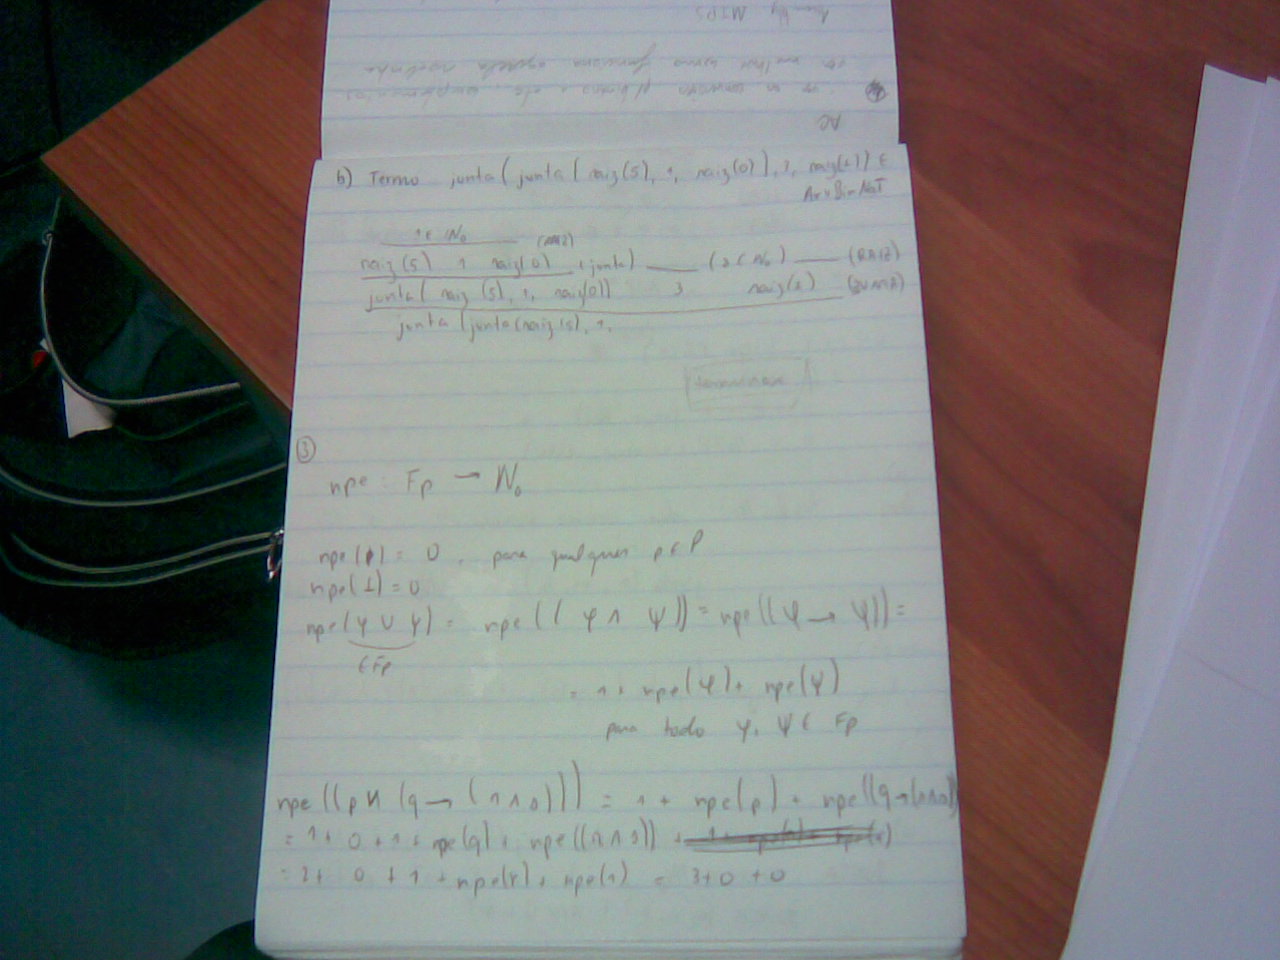 AC
Assembly MIPS
b) Termo junta(junta(raiz(5), 1, raiz(0)), 3, raiz(2)) ∈
ArvBinNaT
1 ∈ N₀ (RAIZ)
raiz(5) 1 raiz(0) (junta) (2 ∈ N₀) (RAIZ)
junta(raiz(5), 1, raiz(0)) 3 raiz(2) (JUNTA)
junta(junta(raiz(5), 1,
terminar
③
npe : Fp → N₀
npe(p) = 0, para qualquer p ∈ P
npe(⊥) = 0
npe(φ ∪ ψ) = npe((φ ∧ ψ)) = npe((φ → ψ)) =
∈ Fp
= 1 + npe(φ) + npe(ψ)
para todo φ, ψ ∈ Fp
npe((p ∨ (q → (r ∧ s)))) = 1 + npe(p) + npe((q → (r ∧ s)))
= 1 + 0 + 1 + npe(q) + npe((r ∧ s))
= 2 + 0 + 1 + npe(r) + npe(s) = 3 + 0 + 0